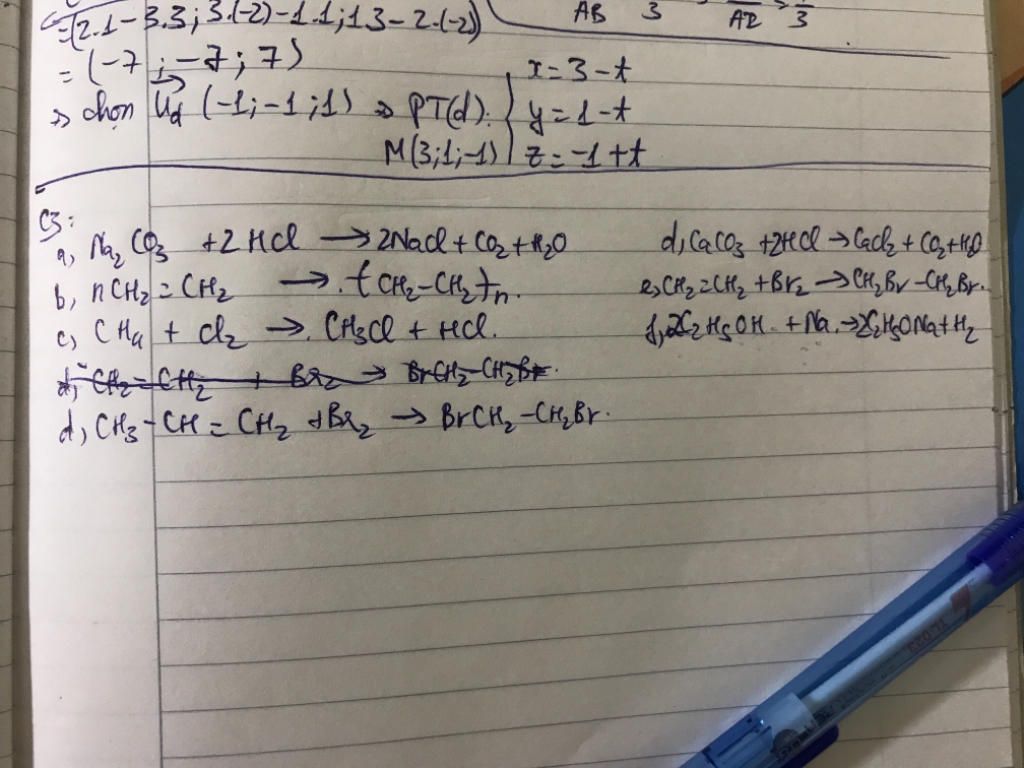 =(2.1-3.3; 3.(-2)-1.1; 1.3-2.(-2))
AB 3 AB 3
= (-7; -7; 7)
=> chọn u⃗d (-1;-1;1) => PT(d): { x=3-t
y=1-t
M(3;1;-1) z=-1+t
C3:
a, Na2CO3 +2HCl → 2NaCl + CO2 + H2O
b, nCH2=CH2 → (CH2-CH2)n.
c, CH4 + Cl2 → CH3Cl + HCl.
d, CH2=CH2 + Br2 → BrCH2-CH2Br.
d, CH3-CH=CH2 +Br2 → BrCH2-CH2Br.
d, CaCO3 +2HCl → CaCl2 + CO2+H2O
e, CH2=CH2 +Br2 → CH2Br-CH2Br.
f, 2C2H5OH + Na → 2C2H5ONa+H2
TL-023